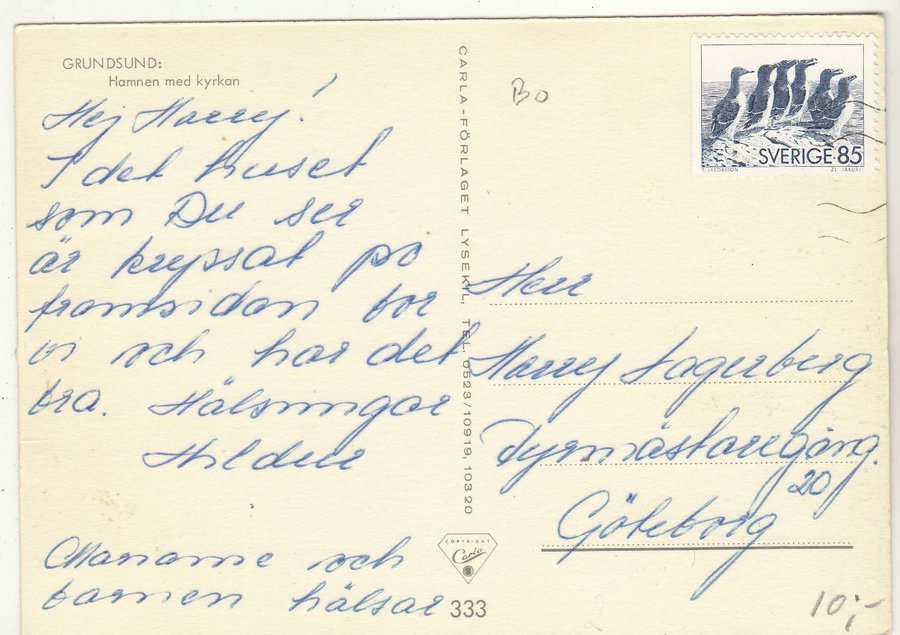 GRUNDSUND:
Hamnen med kyrkan
Hej Harry!
I det huset
som Du ser
är kryssat på
framsidan bor
vi och har det
bra. Hälsningar
Hildur
Marianne och
barnen hälsar
CARLA-FÖRLAGET LYSEKIL, TEL. 0523/10919, 10320
COPYRIGHT
Carla
333
Bo
SVERIGE 85
S. JACOBSSON
ZL. JAKUS
Herr
Harry Lagerberg
Fyrmästaregång.
20
Göteborg
10;-